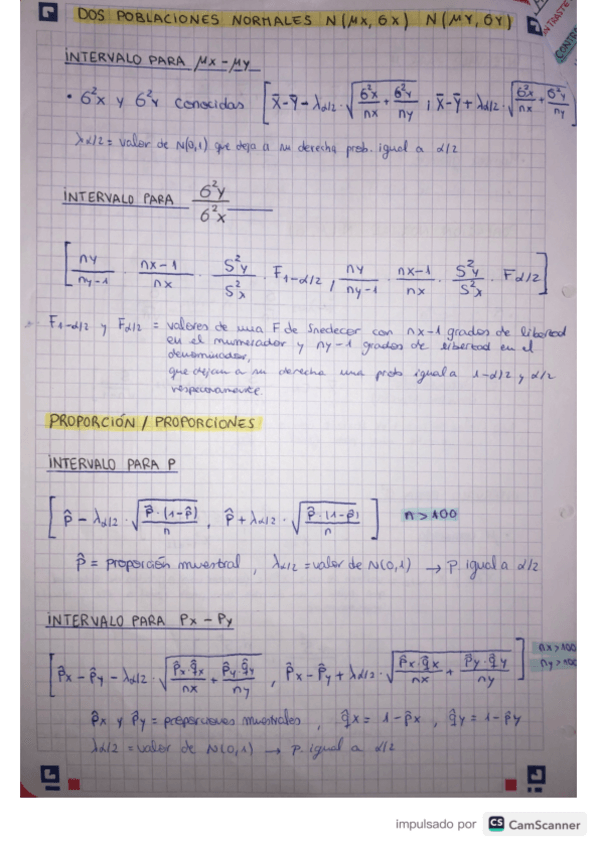 DOS POBLACIONES NORMALES N(μx, σx) N(μY, σY)
INTERVALO PARA μx - μy
• σ²x y σ²Y conocidas [X̄-Ȳ-λα/2·√(σ²x/nx + σ²y/ny) ; X̄-Ȳ+λα/2·√(σ²x/nx + σ²y/ny)]
λα/2 = valor de N(0,1) que deja a su derecha prob. igual a α/2
INTERVALO PARA σ²y/σ²x
[ny/ny-1 · nx-1/nx · S²y/S²x · F1-α/2 , ny/ny-1 · nx-1/nx · S²y/S²x · Fα/2]
F1-α/2 y Fα/2 = valores de una F de Snedecor con nx-1 grados de libertad
en el numerador y ny-1 grados de libertad en el
denominador,
que dejan a su derecha una prob igual a 1-α/2 y α/2
respectivamente.
PROPORCIÓN / PROPORCIONES
INTERVALO PARA P
[p̂ - λα/2 · √(p̂·(1-p̂)/n) , p̂ + λα/2 · √(p̂·(1-p̂)/n)] n>100
p̂ = proporción muestral , λα/2 = valor de N(0,1) → p. igual a α/2
INTERVALO PARA Px - Py
[p̂x - p̂y - λα/2 · √(p̂x·q̂x/nx + p̂y·q̂y/ny) , p̂x - p̂y + λα/2 · √(p̂x·q̂x/nx + p̂y·q̂y/ny)] nx>100
ny>100
p̂x y p̂y = proporciones muestrales , q̂x = 1-p̂x , q̂y = 1-p̂y
λα/2 = valor de N(0,1) → p. igual a α/2
impulsado por CS CamScanner